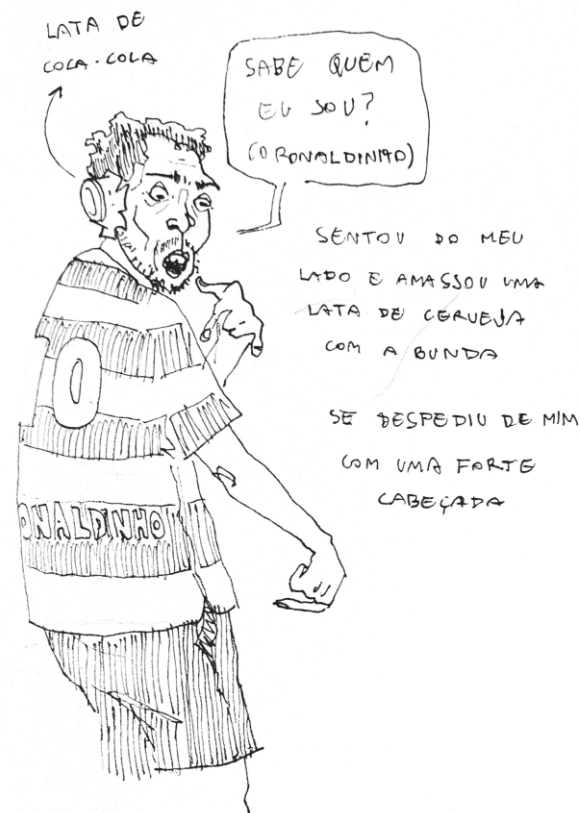 LATA DE
COCA-COLA
SABE QUEM
EU SOU?
(O RONALDINHO)
SENTOU DO MEU
LADO E AMASSOU UMA
LATA DE CERVEJA
COM A BUNDA
SE DESPEDIU DE MIM
COM UMA FORTE
CABEÇADA
10
ONALDINHO